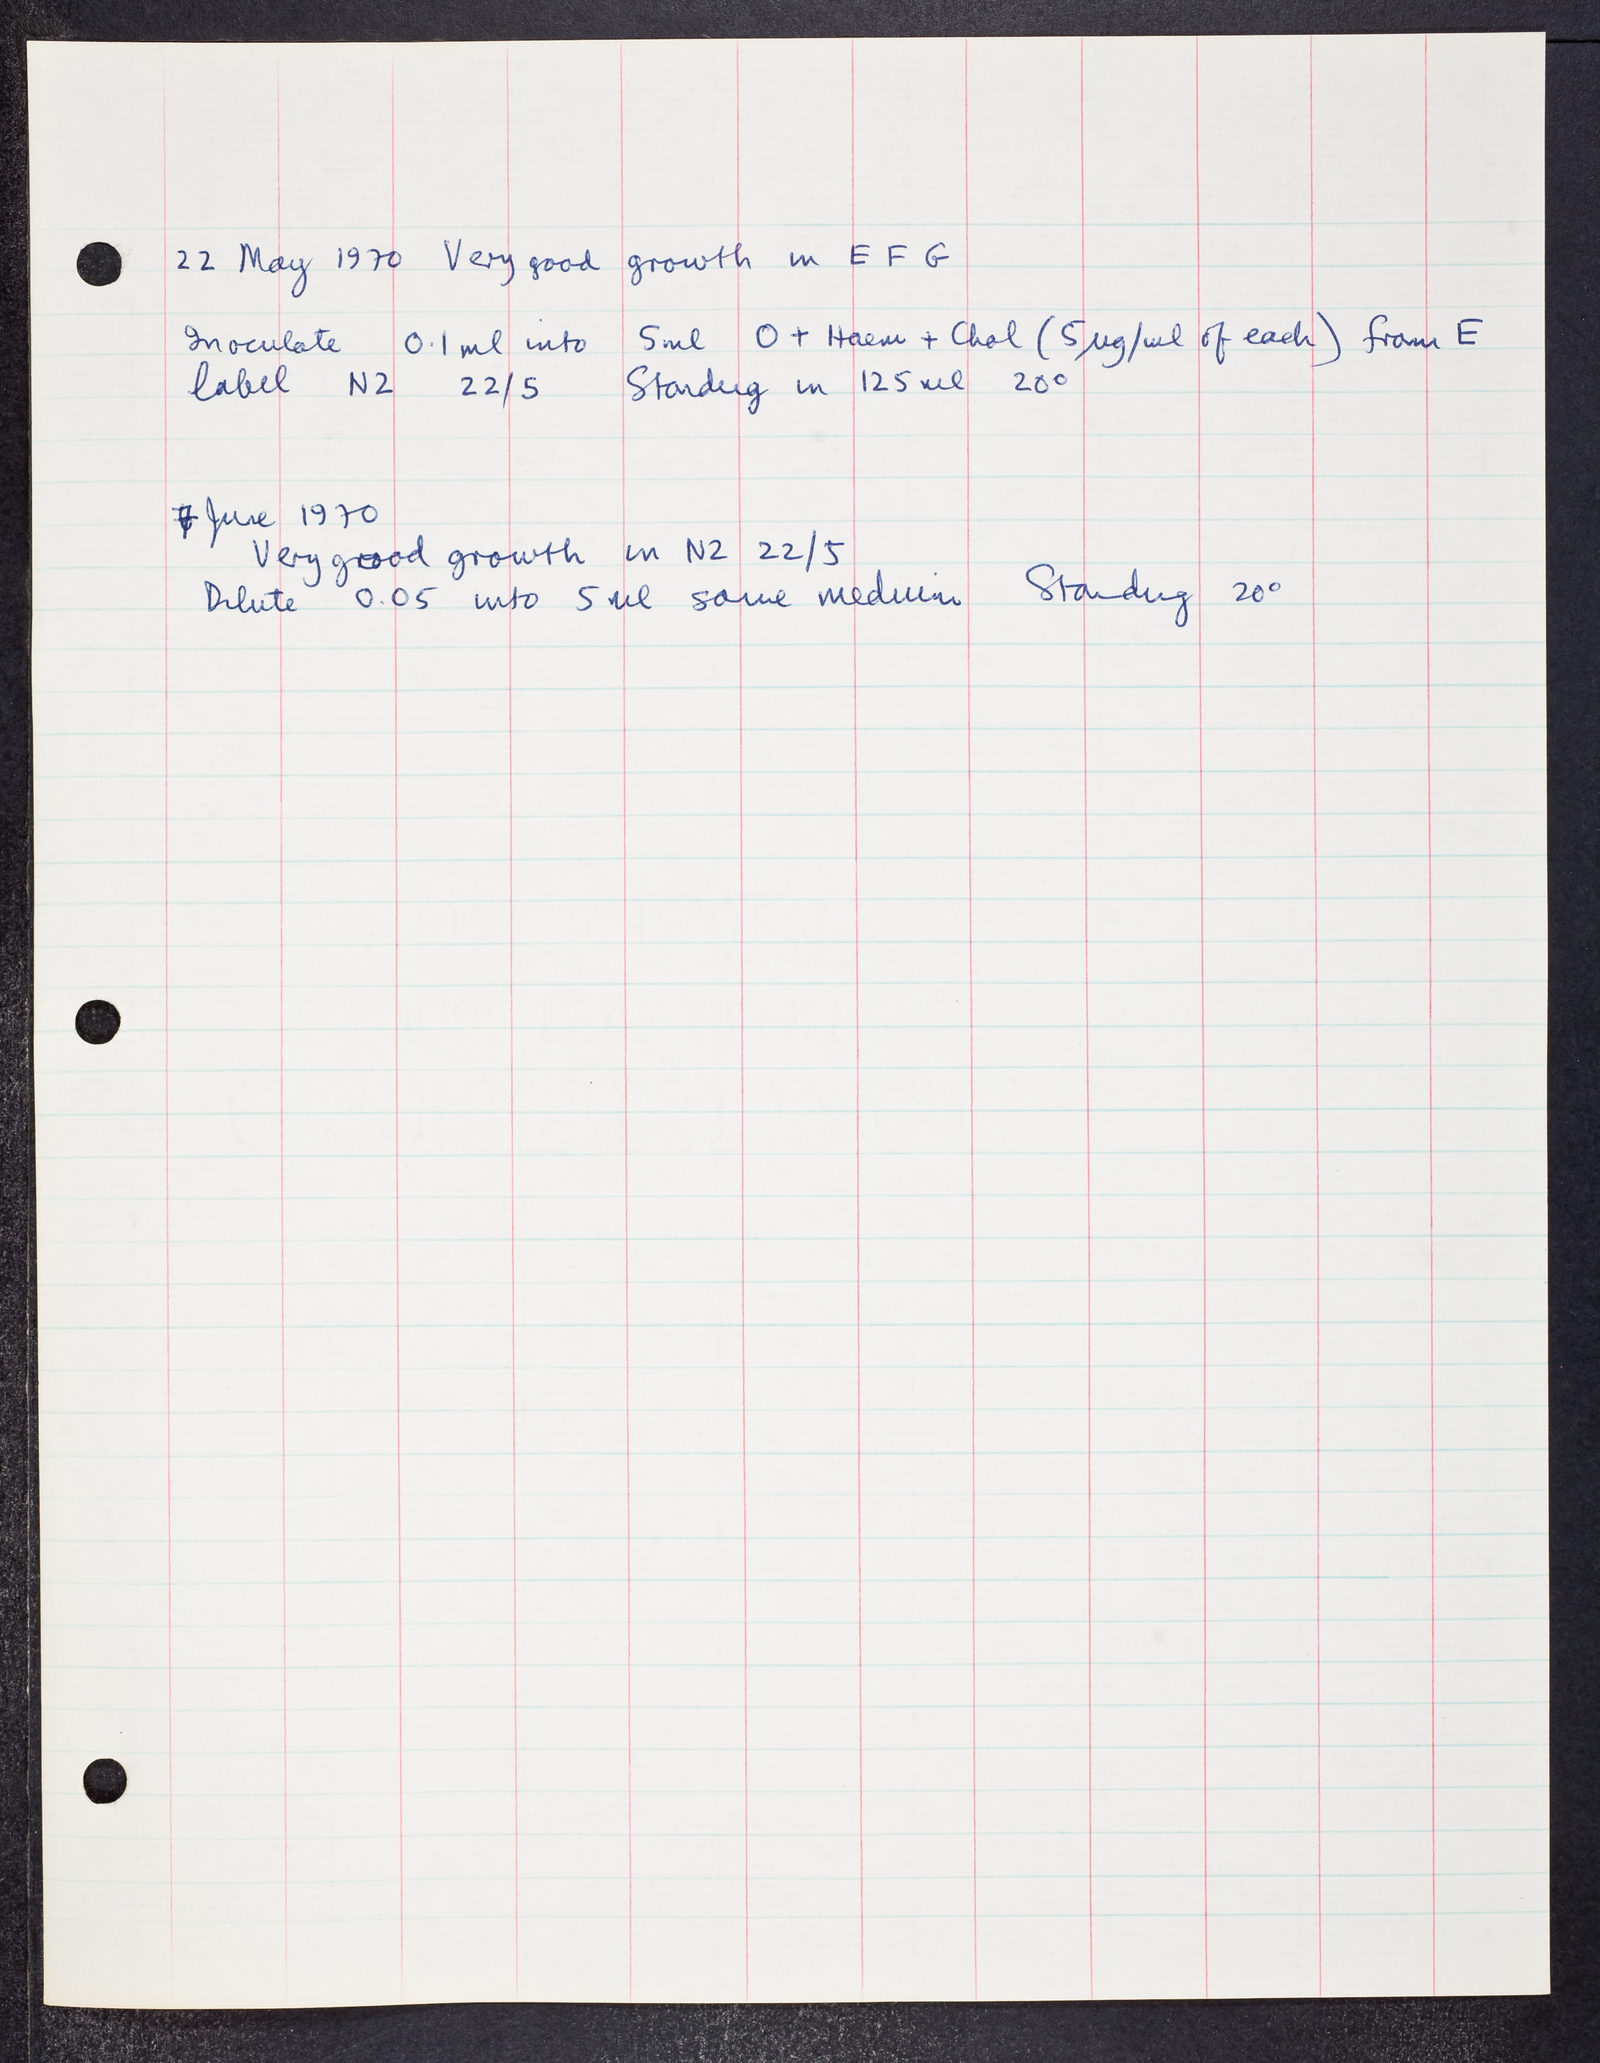 22 May 1970 Very good growth in E F G
Inoculate 0.1 ml into 5ml O + Haem + Chol (5µg/ml of each) from E
label N2 22/5 Standing in 125 ml 20°
7 June 1970
Very good growth in N2 22/5
Dilute 0.05 into 5 ml same medium Standing 20°